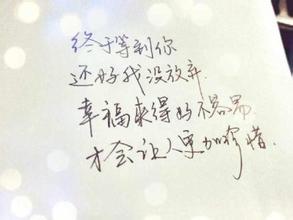 终于等到你
还好我没放弃
幸福来得好不容易
才会让人更加珍惜